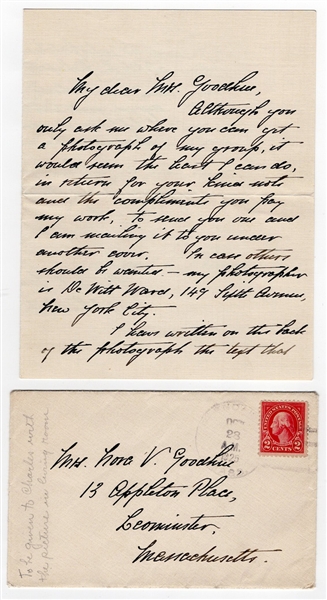 My dear Mrs. Goodhue,
Although you
only ask me where you can get
a photograph of my group, it
would seem the best I can do,
in return for your kind note
and the compliments you pay
my work, to send you one and
I am mailing it to you under
another cover. In case others
should be wanted – my photographer
is De Witt Ward, 149 Fifth Avenue,
New York City.
I have written on the back
of the photograph the text that
UNITED STATES POSTAGE
2 CENTS 2
Mrs. Nora V. Goodhue
13 Appleton Place,
Leominster,
Massachusetts.
To be given to Charles with
the picture in living room